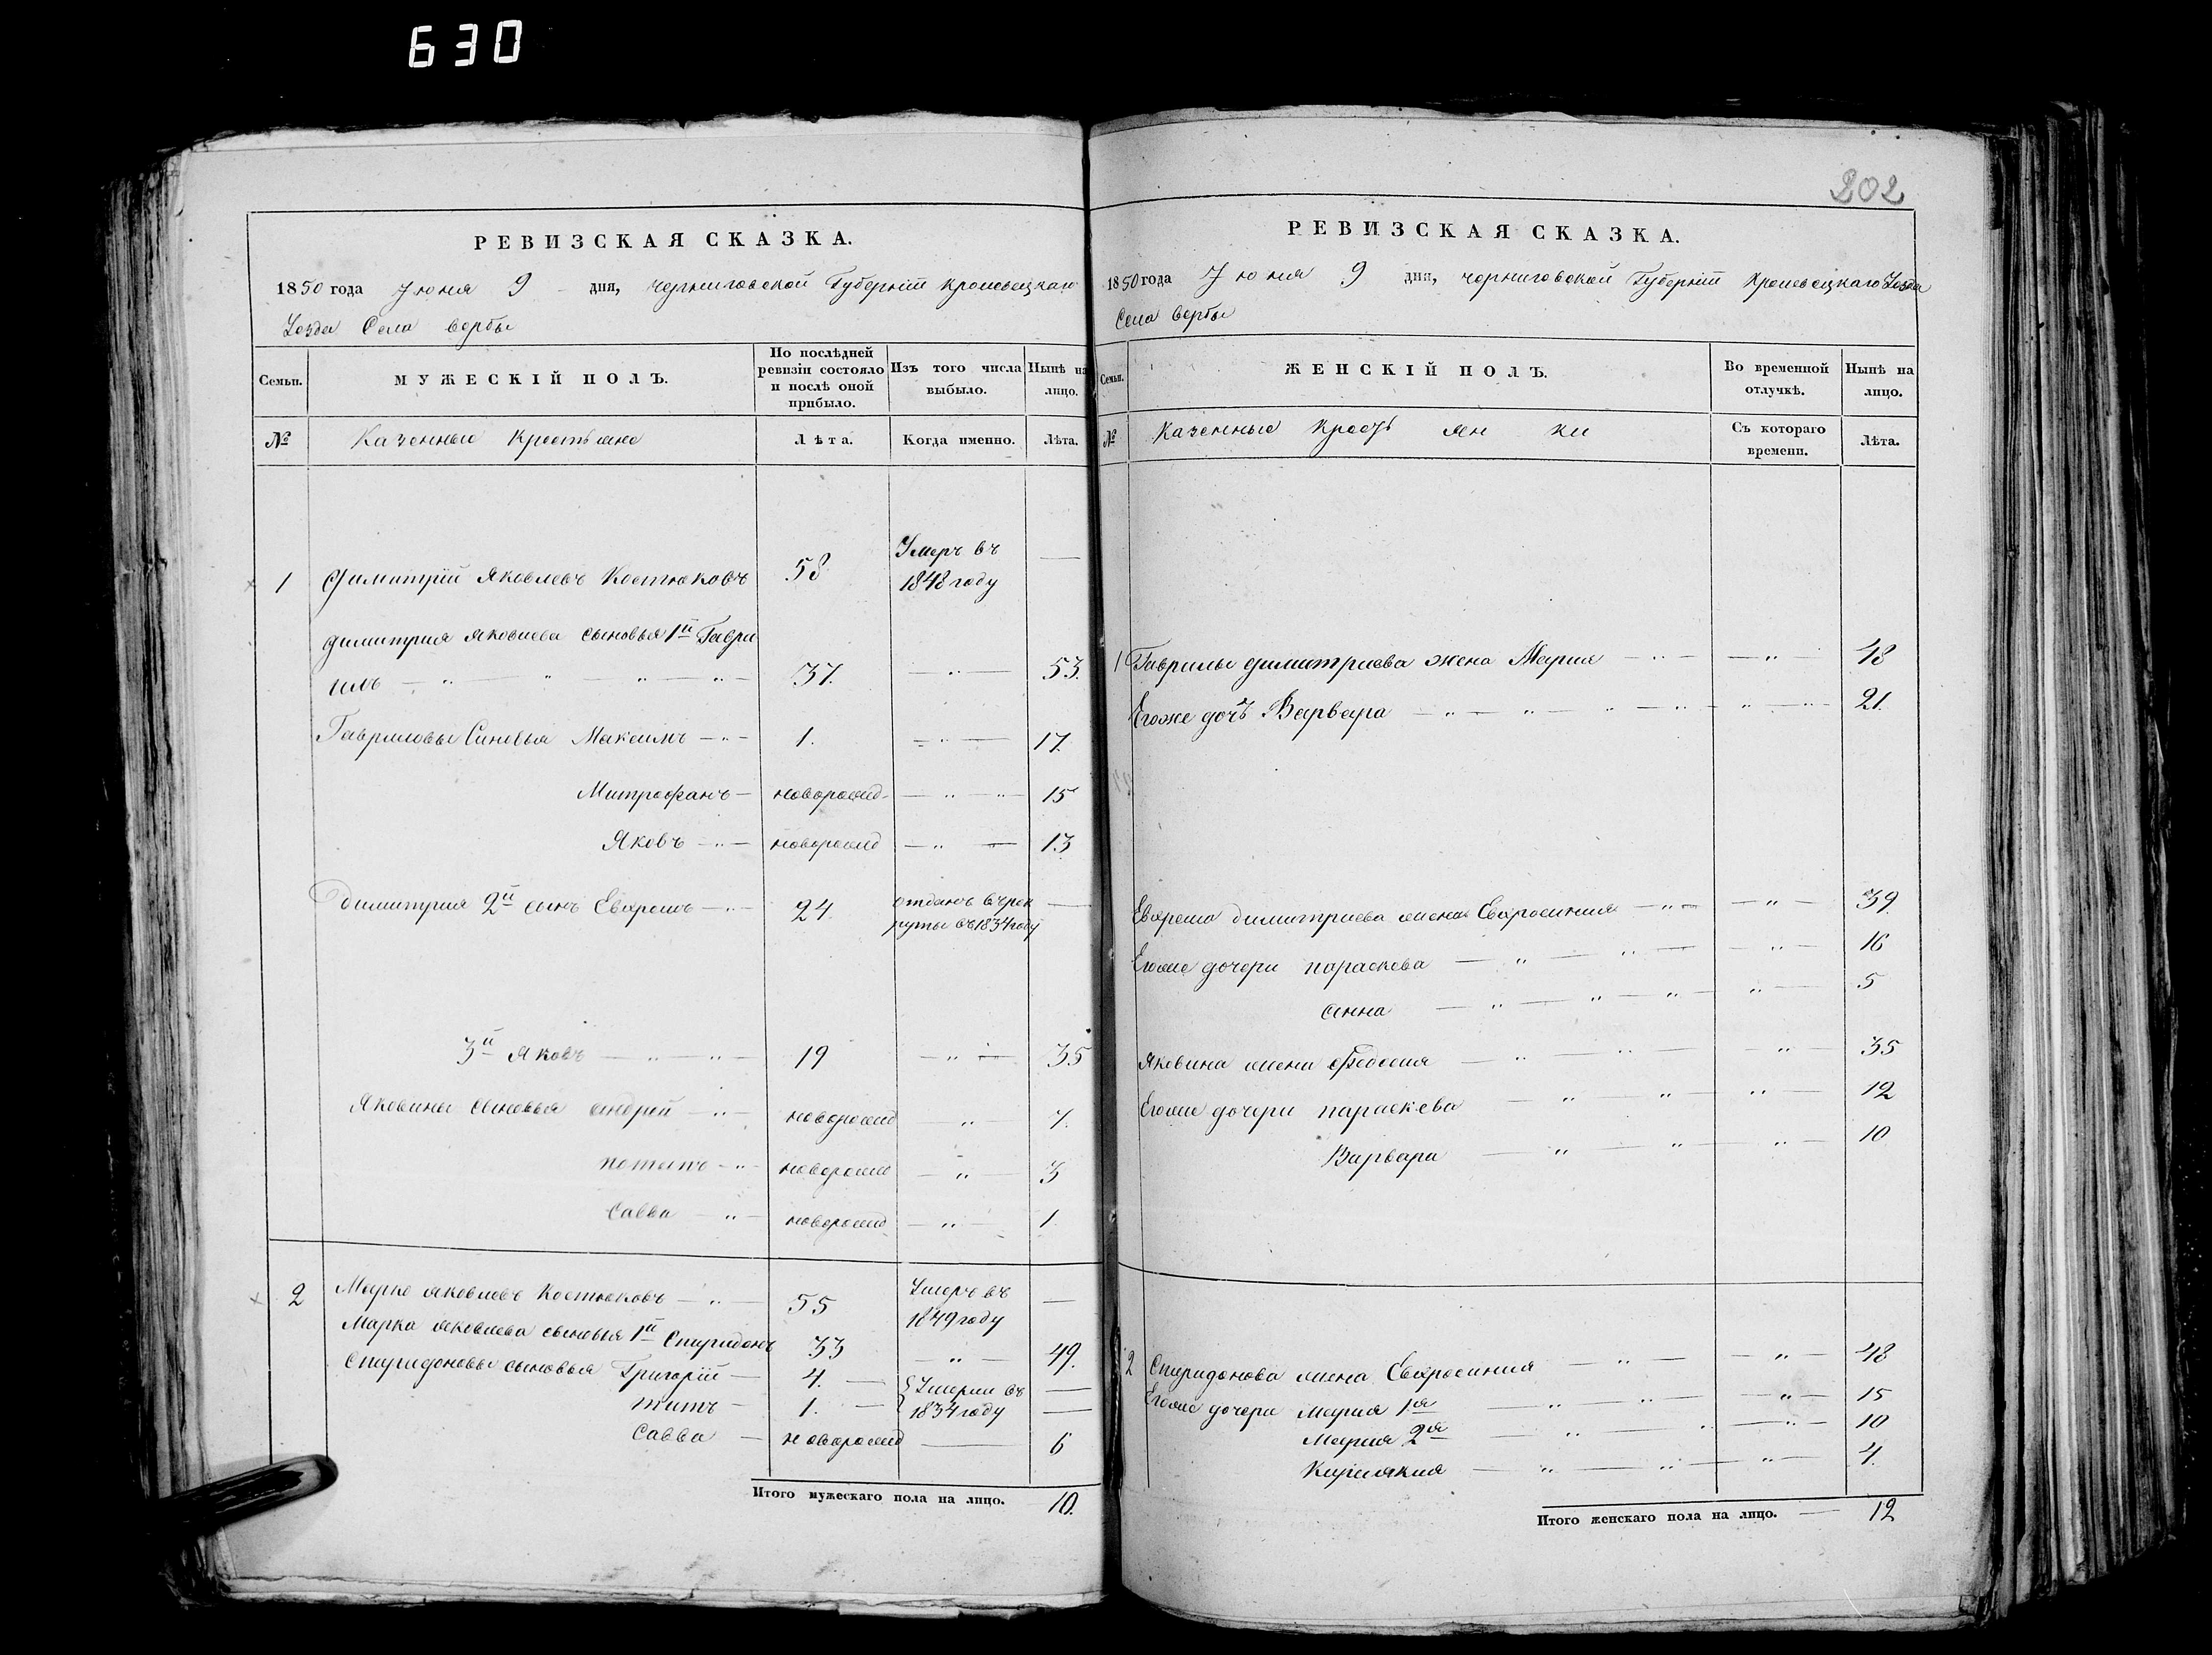 630
РЕВИЗСКАЯ СКАЗКА.
1850 года Июня 9 дня, черниговской Губерніи Кролевецкаго
Уезда Села вербы
Семьи.
МУЖЕСКІЙ ПОЛЪ.
По послѣдней ревизіи состояло и послѣ оной прибыло.
Изъ того числа выбыло.
Нынѣ на лицо.
№
Казенные Крестьяне
Лѣта.
Когда именно.
Лѣта.
1 Димитрій Яковлевъ Костюковъ 58 Умеръ въ 1848 году —
Димитрия Яковлева сыновья 1й Гаври
илъ — " — " — " — " — 37. — " — 53.
Гавриловы Синовья Максимъ — " — 1. — " — 17.
Митрофанъ — новорожд — " — " — 15
Яковъ — " — новорожд — " — 13
Димитрия 2й сынъ Евфремъ — " — 24 отданъ въ рек
руты въ 1834 году —
3й Яковъ — " — " — 19 — " — 35
Яковины сыновья андрей — " — новорожд — " — 7.
потапъ — " — новорожд — " — 3
Савва — " — новорожд — " — 1.
2 Марко яковлевъ Костюковъ — " — 55 Умеръ въ 1849 году —
Марка яковлева сыновья 1й Спиридонъ 33 — " — 49.
Спиридоновы сыновья Григорій — 4. — Умерли въ —
титъ — 1. — 1834 году —
Савва — новорожд — 6
Итого мужескаго пола на лицо. 10.
202
РЕВИЗСКАЯ СКАЗКА.
1850 года Июня 9 дня, черниговской Губерніи Кролевецкаго Уезда
Села вербы
Семьи.
ЖЕНСКІЙ ПОЛЪ.
Во временной отлучкѣ.
Нынѣ на лицо.
№
Казенные Крестьянки
Съ котораго времени.
Лѣта.
1 Гаврилы димитриева жена Мария — " — — " — 48
Егоже дочъ Варвара — " — " — " — " — " — " — 21.
Евфрема димитриева жена Евфросиния — " — — " — 39.
Егоже дочери параскева — " — " — — " — 16
анна — " — " — " — " — 5
Яковина жена Феодосия — " — " — — " — 35
Егоже дочери параскева — " — " — " — 12
Варвара — " — " — " — 10
2 Спиридонова жена Евфросиния — " — — " — 48
Егоже дочери Мария 1я — " — " — " — 15
Мария 2я — " — " — " — 10
Кирьякия — " — " — " — 4.
Итого женскаго пола на лицо. — 12